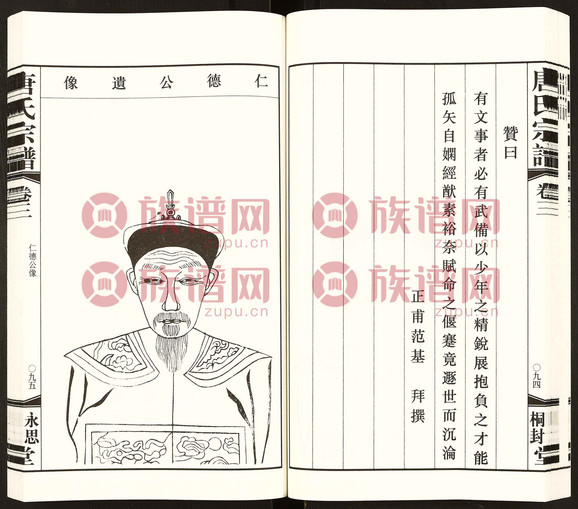 唐氏宗譜
卷三
〇九四
桐封堂
贊曰
有文事者必有武備以少年之精銳展抱負之才能
孤矢自嫻經猷素裕奈賦命之偃蹇竟遯世而沉淪
正甫范基 拜撰
仁德公遺像
唐氏宗譜
卷三
仁德公像
〇九五
永思堂
族谱网
zupu.cn
族谱网
zupu.cn
族谱网
zupu.cn
族谱网
zupu.cn